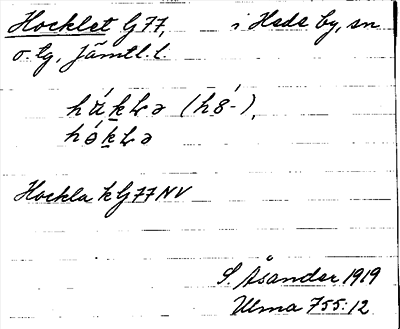 Hocklet G77, i Hede by, sn
o. tg, Jämtl. l.
hú̱kLə (hȣ́-),
hɵ́ḵLə
Hockla k G77 NV
S. Åsander 1919
Ulma 755:12